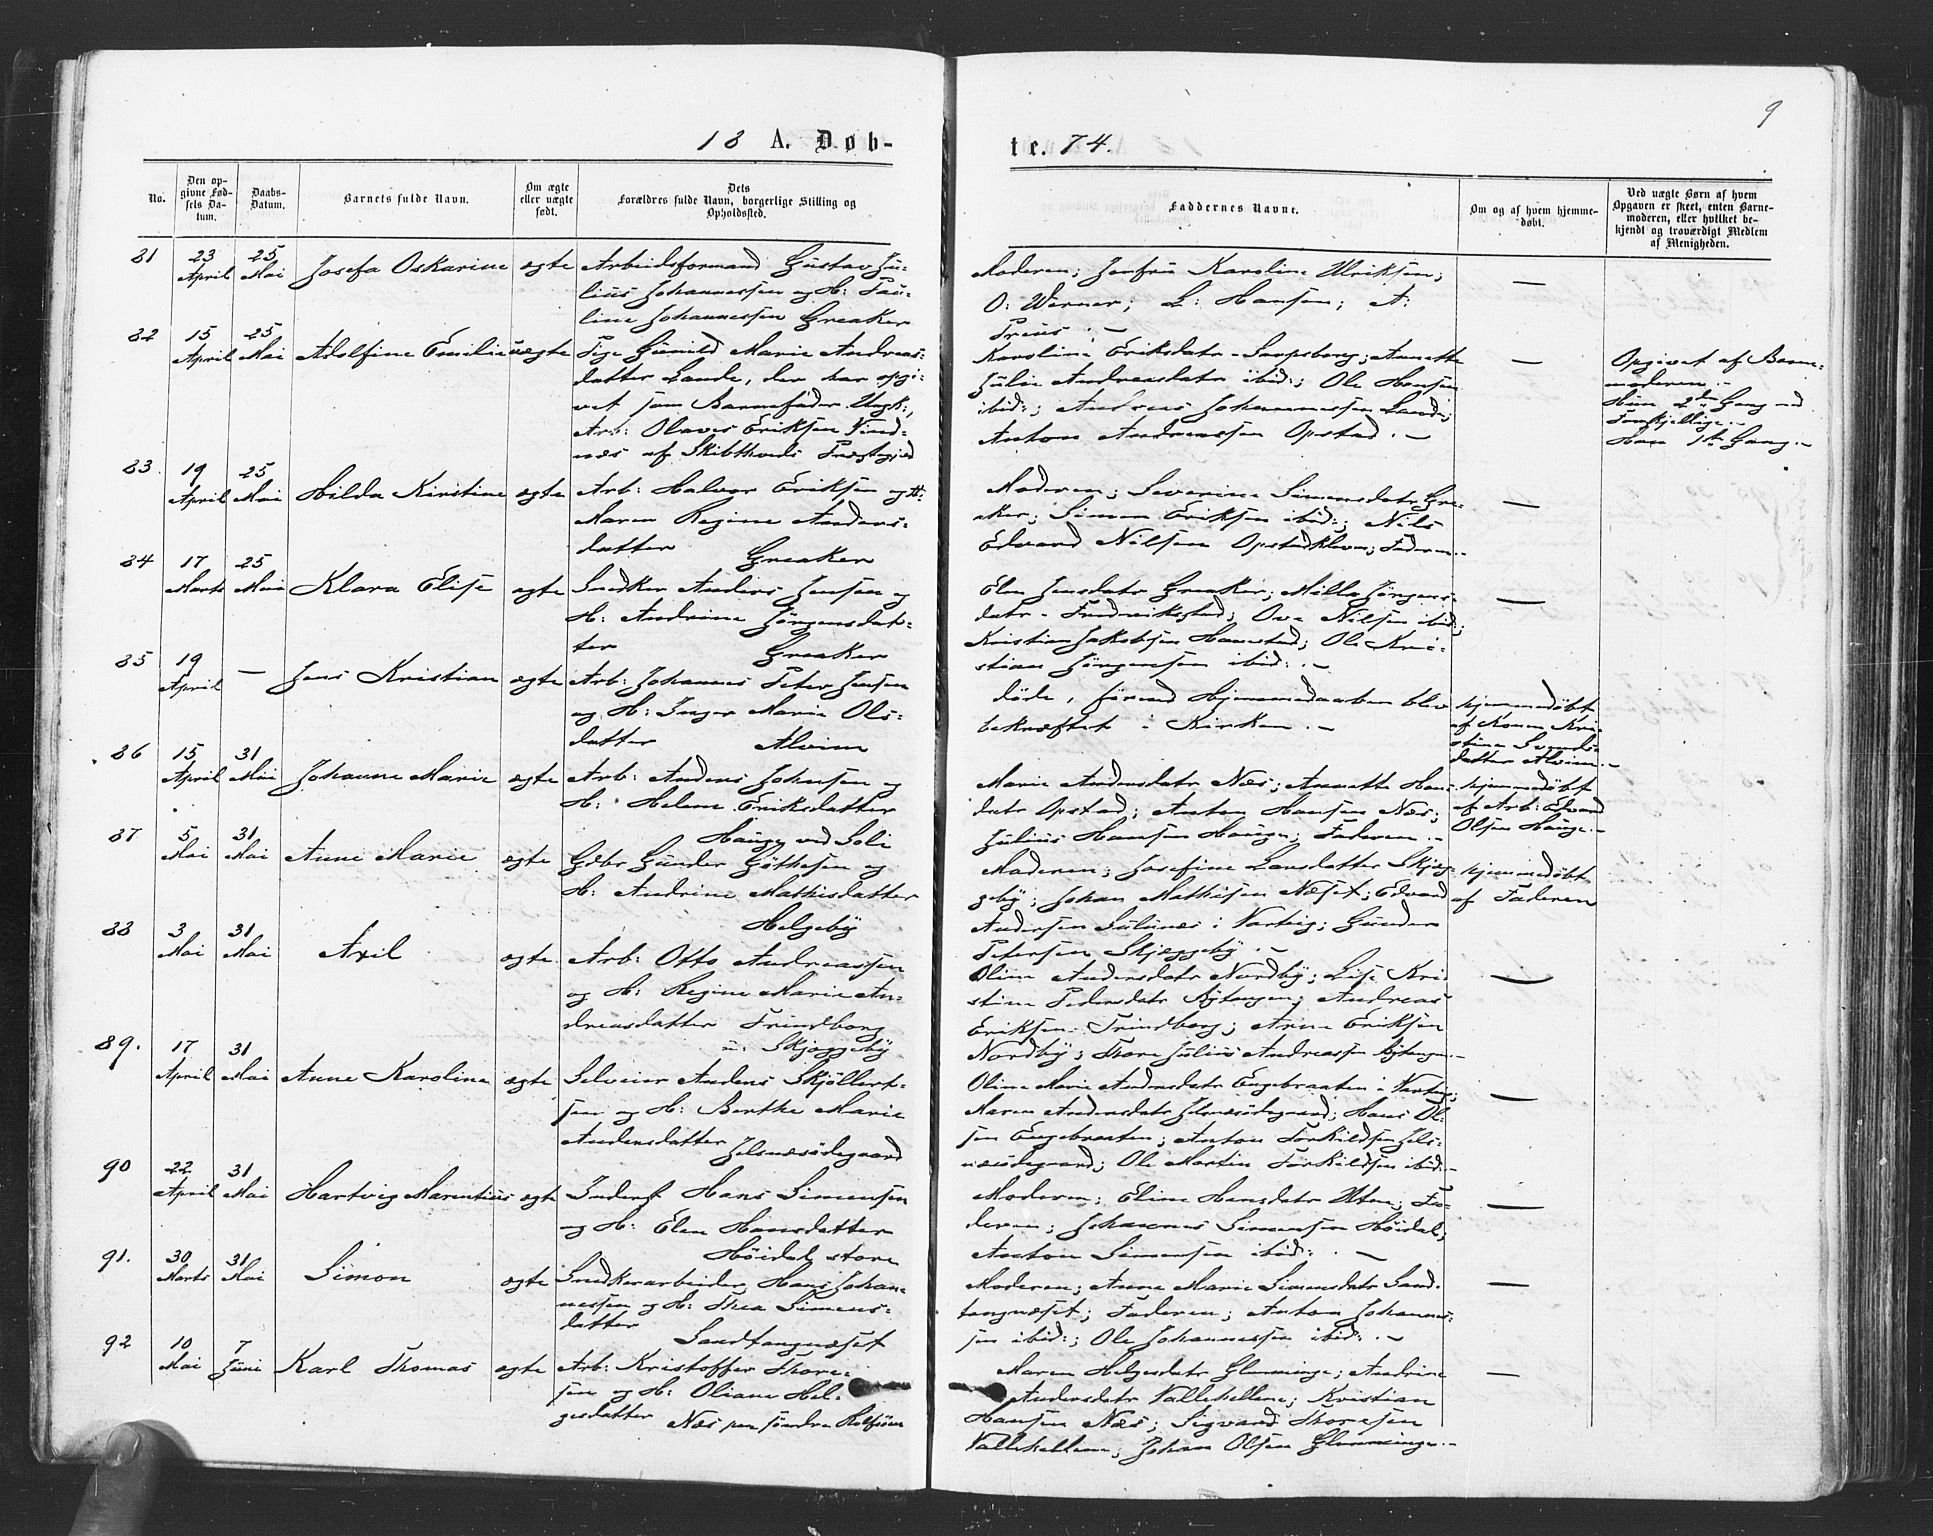 9
18 A. Døb-
te. 74.
No.
Den op-
givne Fød-
sels Da-
tum.
Daabs-
Datum.
Barnets fulde Navn.
Om ægte
eller uægte
født.
Dets
Forældres fulde Navn, borgerlige Stilling og
Opholdssted.
Faddernes Navne.
Om og af hvem hjemme-
døbt.
Ved uægte Børn af hvem
Opgaven er skeet, enten Barne-
moderen, eller hvilket be-
kjendt og troværdigt Medlem
af Menigheden.
81 23 April 25 Mai Josefa Oskarine ægte
Arbeidsformand Gustav Ju-
lius Johannessen og H: Pau-
line Johannessen Greaker
Moderen; Jomfru Karoline Ulriksen;
O: Werner; L: Hansen; A:
Preus. —
—
82 15 April 25 Mai Adolfine Emilie uægte
Pige Gunild Marie Andreas-
datter Lande, der har opgi-
vet som Barnefader Ungk:,
Arb: Olaves Eriksen Vind-
næs af Skibthveds Præstegjæld
Karoline Eriksdatr Sarpsborg; Annette
Julie Andreasdatr ibid:; Ole Hansen
ibid:; Andreas Johannessen Lande;
Anton Andreassen Opstad. —
—
Opgivet af Barne-
moderen. —
Hun 2den Gang ved
Forskjellige. —
Han 1ste Gang. —
83. 19 April 25 Mai Hilda Kirstine ægte
Arb: Halvor Eriksen og H:
Maren Regine Anders-
datter Greaker
Moderen; Severine Simensdatr Gre-
aker; Simen Eriksen ibid:; Nils
Edvard Nilsen Opstadkleven; Faderen. —
—
84 17 Marts 25 Mai Klara Elise ægte
Snedker Anders Jensen og
H: Andrine Jørgensdat-
ter Greaker
Elen Jensdatr Greaker; Milla Jørgens-
datr - Fredrikstad; Ove Nilsen ibid:;
Kristian Jakobsen Hanestad; Ole Kri-
stian Jørgensen ibid:. —
—
85 19 April — Jens Kristian ægte
Arb: Johannes Peter Jensen
og H: Inger Marie Ols-
datter Alvim
døde, førend Hjemmedaaben blev
bekræftet i Kirken. —
hjemmedøbt
af Konen Kri-
stine Svends-
datter Alvim. —
86 15 April 31 Mai Johanne Marie ægte
Arb: Anders Johnsen og
H: Helene Eriksdatter
Hauge ved Soli
Marie Andersdatr Næs; Annette Hans-
datr Opstad; Anton Hansen Næs;
Julius Hansen Hauge; Faderen. —
hjemmedøbt
af Arb: Edvard
Olsen Hauge. —
87 5 Mai 31 Mai Anne Marie ægte
Gdbr Gunder Gøthesen og
H: Andrine Mathisdatter
Helgeby
Moderen; Josefine Larsdatter Skjæg-
geby; Johan Mathisen Næset; Edvard
Andersen Sulusnæs i Varteig; Gunder
Petersen Skjæggeby. —
hjemmedøbt
af Faderen
88 3 Mai 31 Mai Axil ægte
Arb: Otto Andreassen
og H: Regine Marie An-
dreasdatter Trindborg
u. Skjæggeby
Oline Andersdatr Nordby; Lise Kri-
stine Pedersdatr Røtangen; Andreas
Eriksen Trindborg; Arne Eriksen
Nordby; Thore Julius Andreassen Røtangen. —
—
89. 17 April 31 Mai Anne Karoline ægte
Selveier Anders Skjöllert-
sen og H: Berthe Marie
Andersdatter Jelsnæsödegaard
Oline Marie Andersdatr Engebraaten i Varteig;
Maren Andersdatr Jelsnæsödegaard; Hans Ol-
sen Engebraaten; Anton Torkildsen Jels-
næsödegaard; Ole Martin Torkildsen ibid: —
—
90 22 April 31 Mai Hartvig Marentius ægte
Inderst Hans Simensen
og H: Elen Hansdatter
Höidal store
Moderen; Eline Hansdatr Uten; Fa-
deren; Johannes Simensen Höidal;
Anton Simensen ibid: . —
—
91. 30 Marts 31 Mai Simon ægte
Snedkerarbeider Hans Johan-
nessen og H: Thea Simens-
datter Sandtangnæset
Moderen; Anne Marie Simensdatr Sand-
tangnæset; Faderen; Anton Johannes-
sen ibid:; Ole Johannessen ibid: . —
—
92 10 Mai 7 Juni Karl Thomas ægte
Arb: Kristoffer Thore-
sen og H: Oliane Hel-
gesdatter Næs paa søndre Rolfsöen
Maren Helgesdatr Glemminge; Andrine
Andersdatr Vallehellene; Kristian
Hansen Næs; Sigvard Thoresen
Vallehellene; Johan Olsen Glemminge. —
—